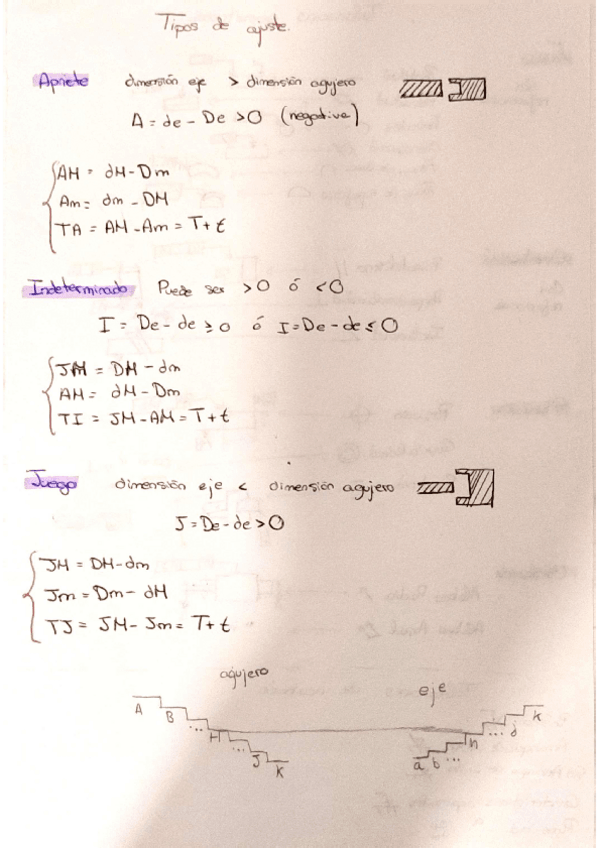 Tipos de ajuste.
Apriete dimensión eje > dimensión agujero
A = de - De > 0 (negative)
AM = dM - Dm
Am = dm - DM
TA = AM - Am = T + t
Indeterminado Puede ser > 0 ó < 0
I = De - de ≥ 0 ó I = De - de ≤ 0
JM = DM - dm
AM = dM - Dm
TI = JM - AM = T + t
Juego dimensión eje < dimensión agujero
J = De - de > 0
JM = DM - dm
Jm = Dm - dM
TJ = JM - Jm = T + t
agujero eje
A B ... H ... J K
a b ... h ... j k